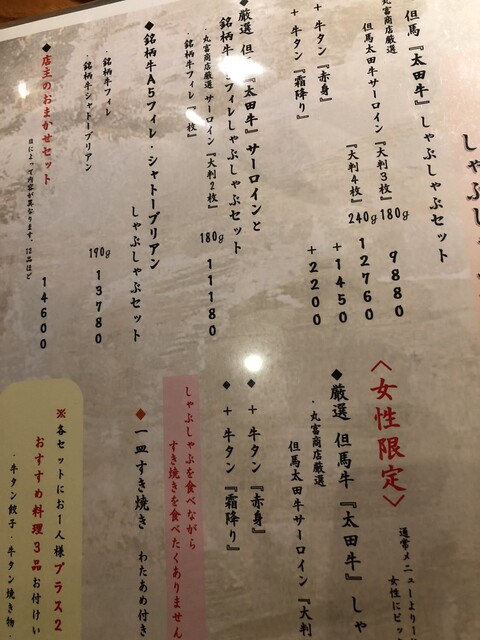 しゃぶし
但馬『太田牛』しゃぶしゃぶセット
丸富商店厳選
但馬太田牛サーロイン『大判3枚』180g 9880
『大判4枚』240g 12760
+牛タン『赤身』 +1450
+牛タン『霜降り』 +2200
◆厳選 但馬『太田牛』サーロインと
銘柄牛A5フィレしゃぶしゃぶセット
・丸富商店厳選 サーロイン『大判2枚』180g 11180
・銘柄牛フィレ『一枚』
◆銘柄牛A5フィレ・シャトーブリアン
しゃぶしゃぶセット
・銘柄牛フィレ 190g 13780
・銘柄牛シャトーブリアン
◆店主のおまかせセット
日によって内容が異なります。12品ほど 14600
〈女性限定〉
通常メニューより
女性にピッ
◆厳選 但馬牛『太田牛』しゃ
・丸富商店厳選
但馬太田牛サーロイン『大判
◆+牛タン『赤身』
◆+牛タン『霜降り』
しゃぶしゃぶを食べながら
すき焼きを食べたくありません
◆一皿すき焼き わたあめ付き
※各セットにお一人様プラス2
おすすめ料理3品お付けい
・牛タン餃子・牛タン焼き物